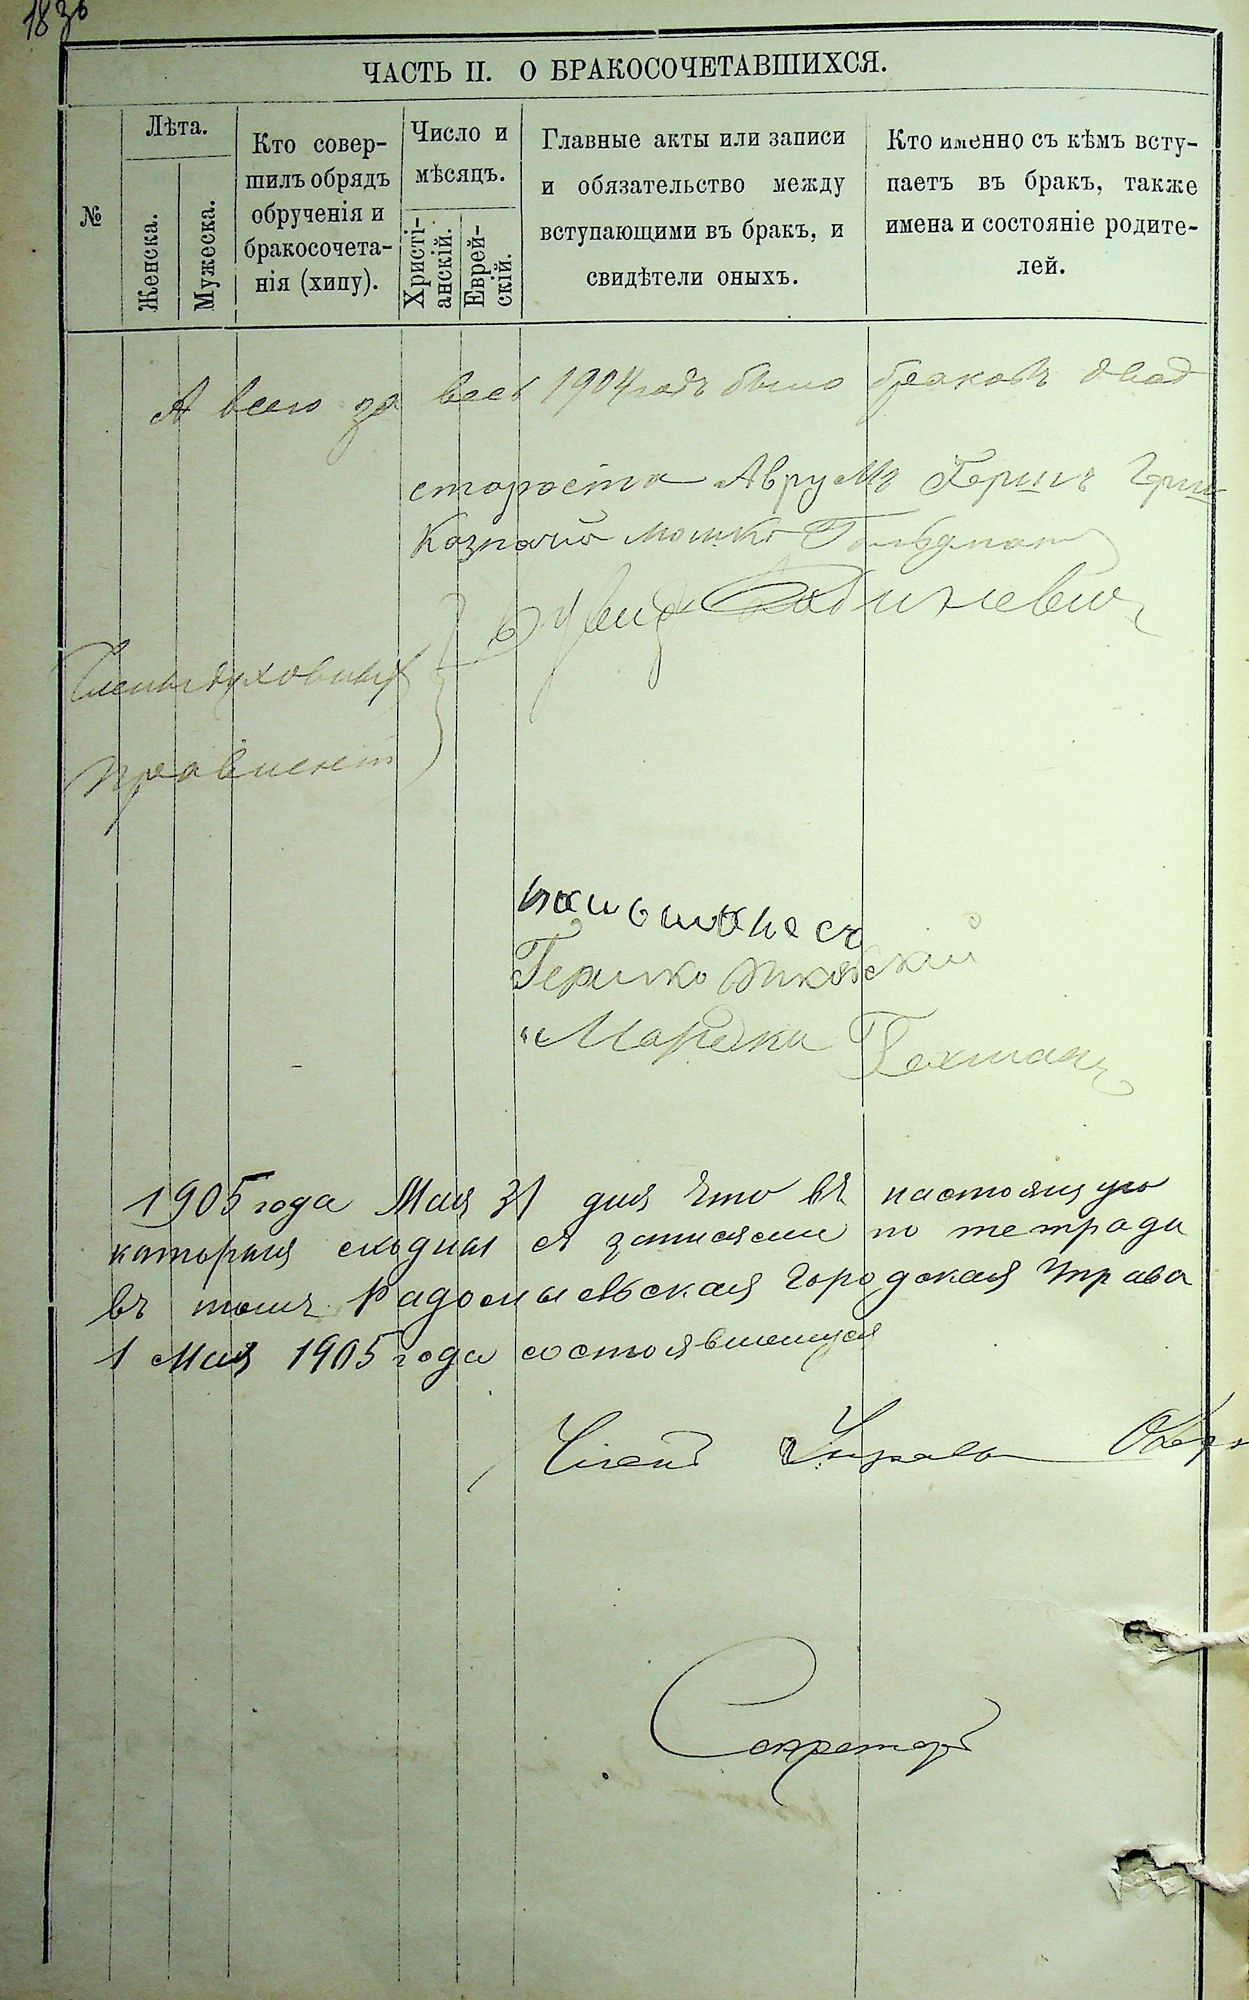 183об
ЧАСТЬ II. О БРАКОСОЧЕТАВШИХСЯ.
№
Лѣта.
Женска.
Мужеска.
Кто совер-
шилъ обрядъ
обрученія и
бракосочета-
нія (хипу).
Число и
мѣсяцъ.
Христі-
анскій.
Еврей-
скій.
Главные акты или записи
и обязательство между
вступающими въ бракъ, и
свидѣтели оныхъ.
Кто именно съ кѣмъ всту-
паетъ въ бракъ, также
имена и состояніе родите-
лей.
А всего за весь 1904 годъ было браковъ двад
староста Аврумъ Гершъ
Казначей Мошко Гольдман
Члены духовных
правленій
Гершко
Мордко Гехман
1905 года Мая 31 дня что въ настоящую
которыя сходны съ записями по тетради
въ томъ Радомысльская Городская Управа
1 Мая 1905 года состоявшемуся
Членъ Управы
Секретарь